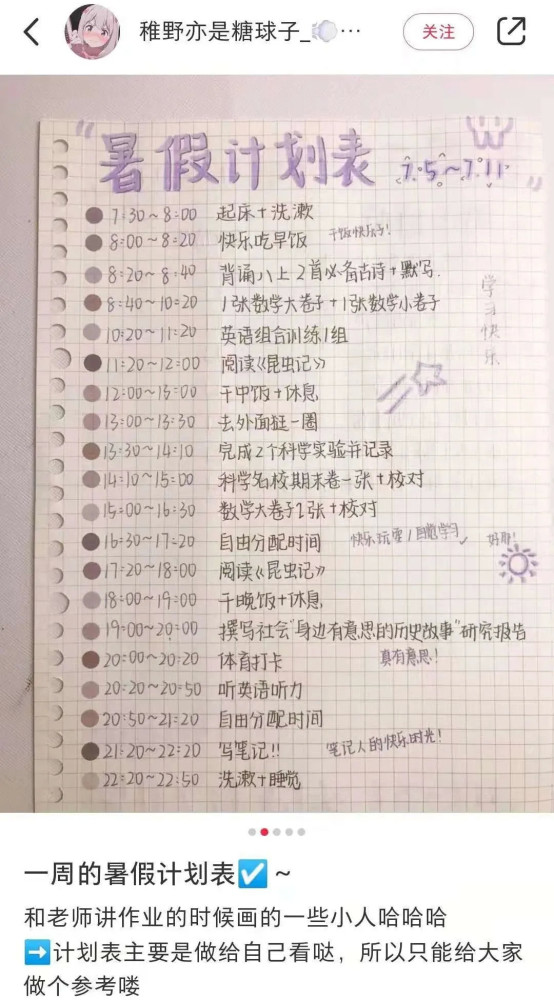 稚野亦是糖球子_💨···
关注
“暑假计划表 7.5~7.11”
7:30~8:00 起床+洗漱
8:00~8:20 快乐吃早饭 干饭快乐子!
8:20~8:40 背诵八上2首必备古诗+默写.
8:40~10:20 1张数学大卷子+1张数学小卷子
10:20~11:20 英语组合训练1组
11:20~12:00 阅读《昆虫记》
12:00~13:00 干中饭+休息
13:00~13:30 去外面逛一圈
13:30~14:10 完成2个科学实验并记录
14:10~15:00 科学名校期末卷一张+校对
15:00~16:30 数学大卷子2张+校对
16:30~17:20 自由分配时间 快乐玩耍/自觉学习
好耶!
17:20~18:00 阅读《昆虫记》
18:00~19:00 干晚饭+休息
19:00~20:00 撰写社会“身边有意思的历史故事”研究报告
真有意思!
20:00~20:20 体育打卡
20:20~20:50 听英语听力
20:50~21:20 自由分配时间
21:20~22:20 写笔记!! 笔记人的快乐时光!
22:20~22:50 洗漱+睡觉
学习快乐
一周的暑假计划表☑️~
和老师讲作业的时候画的一些小人哈哈哈
➡️计划表主要是做给自己看哒，所以只能给大家
做个参考喽